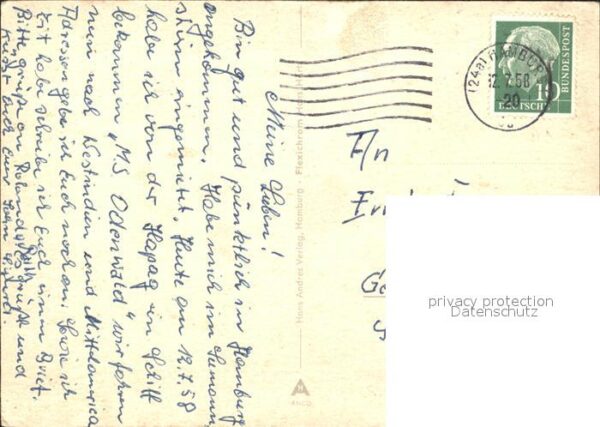 Meine Lieben!
Bin gut und pünktlich in Hamburg
angekommen. Habe mich im Seemann
sheim einquartiert. Heute am 12.7.58
habe ich von der Hapag ein Schiff
bekommen „MS Odenwald“ wir fahren
nun nach Westindien und Mittelamerica
Adressen gebe ich Euch noch an. Sowie ich
Zeit habe schreibe ich Euch einen Brief.
Bitte grüße an Roland
und
küsst Euch Euer Sohn
Hans Andres Verlag, Hamburg · Flexichrom
ANCO
(24a) HAMBURG
12.7.58
20
10
DEUTSCHE
BUNDESPOST
An
privacy protection
Datenschutz